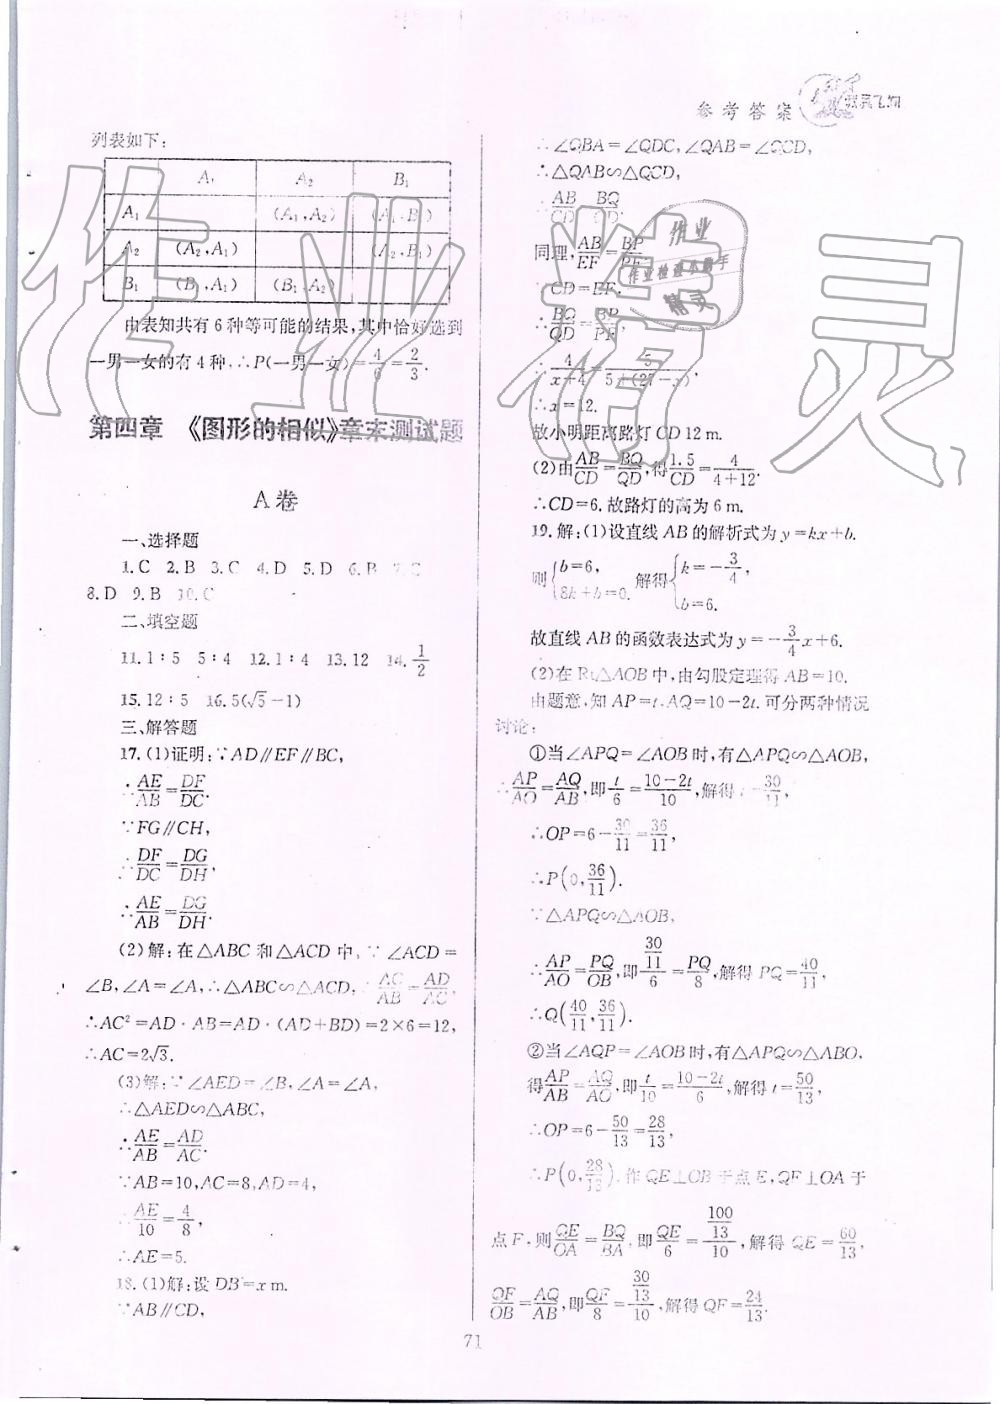 参考答案
列表如下:
A₁ A₂ B₁
A₁ (A₁,A₂) (A₁,B₁)
A₂ (A₂,A₁) (A₂,B₁)
B₁ (B₁,A₁) (B₁,A₂)
由表知共有6种等可能的结果,其中恰好选到
一男一女的有4种,∴P(一男一女)=4/6=2/3.
第四章 《图形的相似》章末测试题
A卷
一、选择题
1.C 2.B 3.C 4.D 5.D 6.B 7.C
8.D 9.B 10.C
二、填空题
11.1:5 5:4 12.1:4 13.12 14.1/2
15.12:5 16.5(√5-1)
三、解答题
17.(1)证明:∵AD∥EF∥BC,
∴AE/AB=DF/DC.
∵FG∥CH,
∴DF/DC=DG/DH,
∴AE/AB=DG/DH.
(2)解:在△ABC和△ACD中,∵∠ACD=
∠B,∠A=∠A,∴△ABC∽△ACD,∴AC/AB=AD/AC,
∴AC²=AD·AB=AD·(AD+BD)=2×6=12,
∴AC=2√3.
(3)解:∵∠AED=∠B,∠A=∠A,
∴△AED∽△ABC,
∴AE/AB=AD/AC.
∵AB=10,AC=8,AD=4,
∴AE/10=4/8,
∴AE=5.
18.(1)解:设DB=x m.
∵AB∥CD,
∴∠QBA=∠QDC,∠QAB=∠QCD,
∴△QAB∽△QCD,
∴AB/CD=BQ/QD.
同理,AB/EF=BP/PF.
∵CD=EF,
∴BQ/QD=BP/PF,
∴4/(x+4)=5/(5+(27-x)),
∴x=12.
故小明距离路灯CD 12 m.
(2)由AB/CD=BQ/QD,得1.5/CD=4/(4+12).
∴CD=6.故路灯的高为6 m.
19.解:(1)设直线AB的解析式为y=kx+b.
则{b=6, 8k+b=0. 解得{k=-3/4, b=6.
故直线AB的函数表达式为y=-3/4x+6.
(2)在Rt△AOB中,由勾股定理得AB=10.
由题意,知AP=t,AQ=10-2t.可分两种情况
讨论:
①当∠APQ=∠AOB时,有△APQ∽△AOB,
∴AP/AO=AQ/AB,即t/6=(10-2t)/10,解得t=30/11,
∴OP=6-30/11=36/11,
∴P(0,36/11).
∵△APQ∽△AOB,
∴AP/AO=PQ/OB,即(30/11)/6=PQ/8,解得PQ=40/11,
∴Q(40/11,36/11).
②当∠AQP=∠AOB时,有△APQ∽△ABO,
得AP/AB=AQ/AO,即t/10=(10-2t)/6,解得t=50/13,
∴OP=6-50/13=28/13,
∴P(0,28/13).作QE⊥OB于点E,QF⊥OA于
点F,则QE/OA=BQ/BA,即QE/6=(100/13)/10,解得QE=60/13,
QF/OB=AQ/AB,即QF/8=(30/13)/10,解得QF=24/13.
71
作业精灵
作业
作业检查小助手
精灵